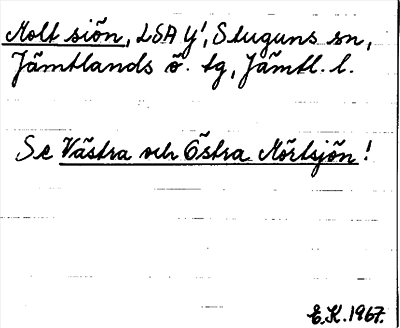 Molt siön, LSA y', Stuguns sn,
Jämtlands ö. tg, Jämtl. l.
Se Västra och Östra Mörtsjön!
E.K. 1967.